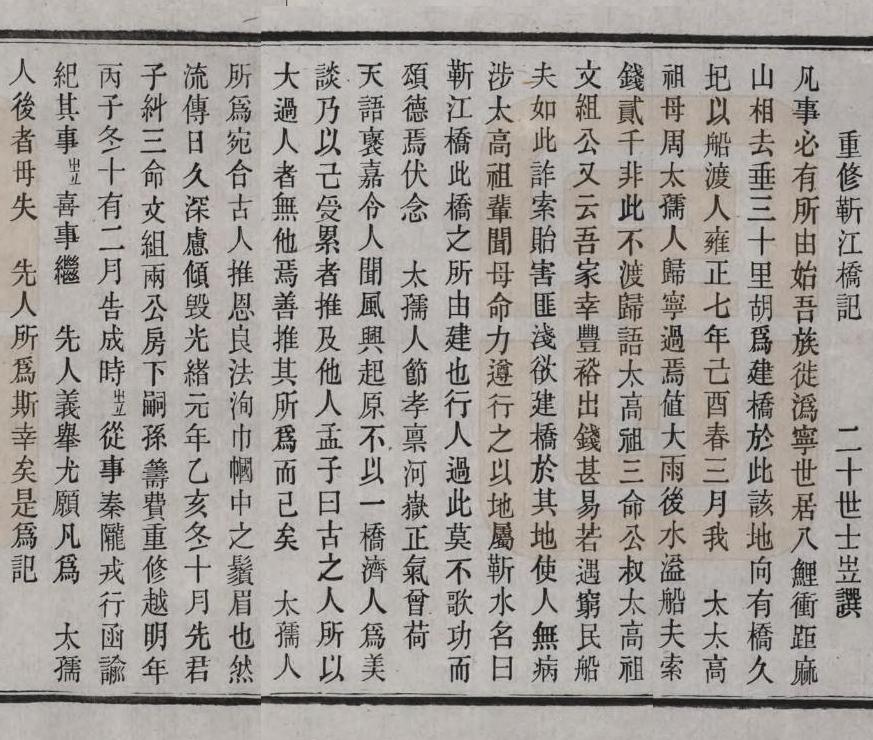 重修靳江橋記 二十世士㞷譔
凡事必有所由始吾族徙溈寧世居八鯉衝距麻
山相去垂三十里胡爲建橋於此該地向有橋久
圯以船渡人雍正七年己酉春三月我 太太高
祖母周太孺人歸寧過焉值大雨後水溢船夫索
錢貳千非此不渡歸語太高祖三命公叔太高祖
文組公又云吾家幸豐裕出錢甚易若遇窮民船
夫如此詐索貽害匪淺欲建橋於其地使人無病
涉太高祖輩聞母命力遵行之以地屬靳水名曰
靳江橋此橋之所由建也行人過此莫不歌功而
頌德焉伏念 太孺人節孝稟河嶽正氣曾荷
天語褒嘉令人聞風興起原不以一橋濟人爲美
談乃以己受累者推及他人孟子曰古之人所以
大過人者無他焉善推其所爲而已矣 太孺人
所爲宛合古人推恩良法洵巾幗中之鬚眉也然
流傳日久深慮傾毀光緒元年乙亥冬十月先君
子糾三命文組兩公房下嗣孫籌費重修越明年
丙子冬十有二月告成時㞷從事秦隴戎行函諭
紀其事㞷喜事繼 先人義舉尤願凡爲 太孺
人後者毋失 先人所爲斯幸矣是爲記